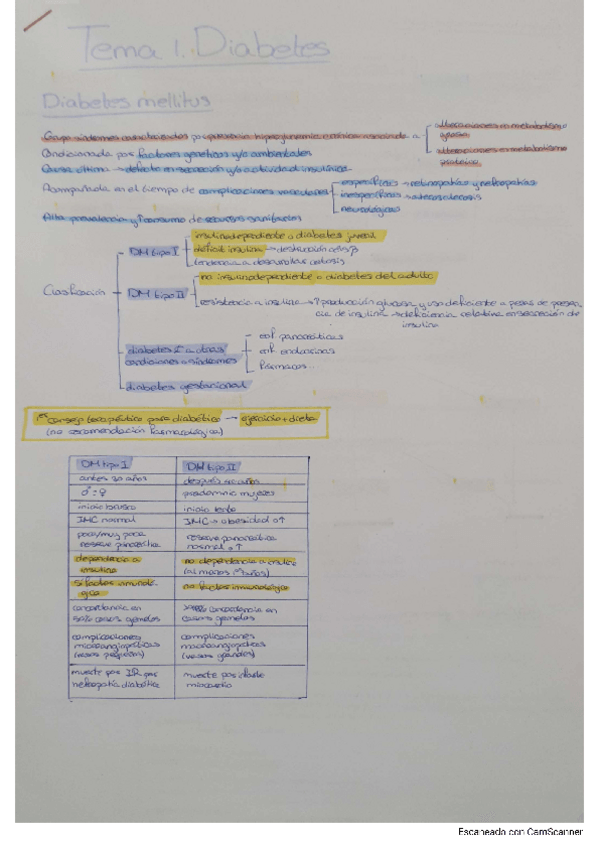 Tema 1. Diabetes
Diabetes mellitus
Grupo síndromes caracterizados por presencia hiperglucemia crónica asociada a
alteraciones en metabolismo grasa
alteraciones en metabolismo proteico
Condicionada por factores genéticos y/o ambientales
Causa última → defecto en secreción y/o actividad insulínica
Acompañada en el tiempo de complicaciones vasculares
específicas → retinopatías y nefropatías
inespecíficas → aterosclerosis
neurológicas
Alta prevalencia y consumo de recursos sanitarios
Clasificación
DM tipo I
insulinodependiente o diabetes juvenil
déficit insulina → destrucción céls β
tendencia a desarrollar cetosis
DM tipo II
no insulinodependiente o diabetes del adulto
resistencia a insulina → ↑ producción glucosa y uso deficiente a pesar de presen
cia de insulina → deficiencia relativa en secreción de
insulina
diabetes 2ª a otras
condiciones o síndromes
enf. pancreáticas
enf. endocrinas
Fármacos...
diabetes gestacional
1er consejo terapéutico para diabético → ejercicio + dieta
(no recomendación farmacológica)
DM tipo I DM tipo II
antes 30 años después 40 años
♂ = ♀ predominio mujeres
inicio brusco inicio lento
IMC normal IMC → obesidad o ↑
poca/muy poca reserva pancreática
reserva pancreática normal o ↑
dependencia a insulina
no dependencia a insulina (al menos años)
sí factor inmunológico
no factor inmunológico
concordancia en 50% casos gemelos
concordancia en casos gemelos
complicaciones microangiopáticas (vasos pequeños)
complicaciones macroangiopáticas (vasos grandes)
muerte por IR por nefropatía diabética
muerte por infarto miocardio
Escaneado con CamScanner